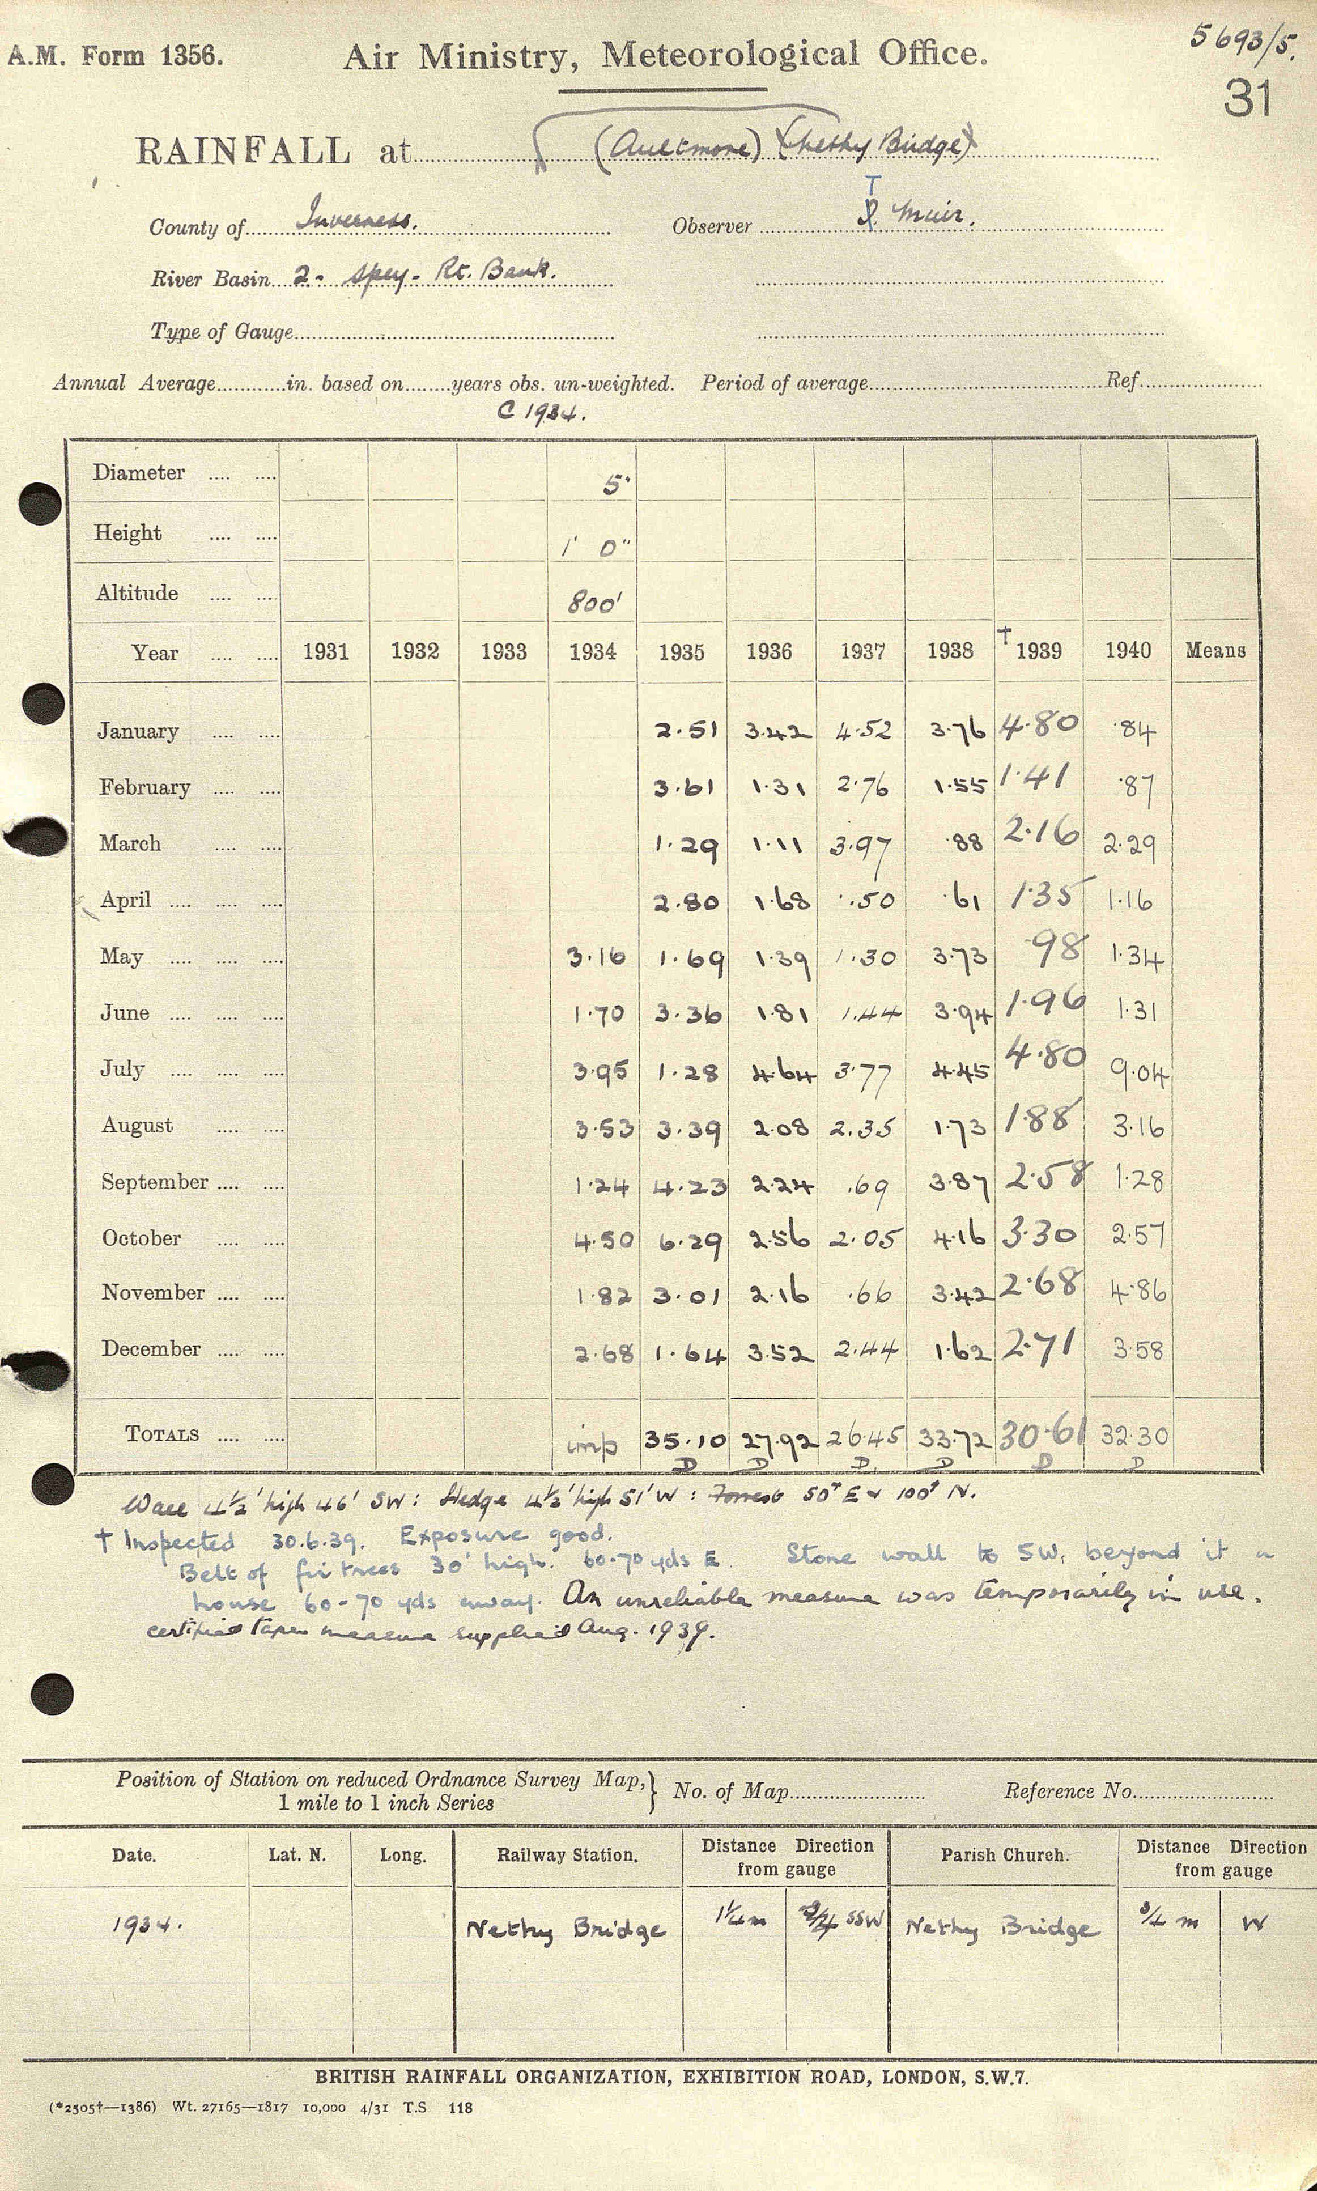 5693/5.
A.M. Form 1356. Air Ministry, Meteorological Office.
31
RAINFALL at (Aultmore) (Nethy Bridge)
T
County of Inverness. Observer Muir.
River Basin 2 - Spey - Rt. Bank.
Type of Gauge
Annual Average in. based on years obs. un-weighted. Period of average Ref
C 1934.
Diameter .... .... 5"
Height .... .... 1' 0"
Altitude .... .... 800'
Year .... .... 1931 1932 1933 1934 1935 1936 1937 1938 †1939 1940 Means
January .... .... 2.51 3.42 4.52 3.76 4.80 .84
February .... .... 3.61 1.31 2.76 1.55 1.41 .87
March .... .... 1.29 1.11 3.97 .88 2.16 2.29
April .... .... .... 2.80 1.68 .50 .61 1.35 1.16
May .... .... .... 3.16 1.69 1.39 1.30 3.73 .98 1.34
June .... .... .... 1.70 3.36 1.81 1.44 3.94 1.96 1.31
July .... .... .... 3.95 1.28 4.64 3.77 4.45 4.80 9.04
August .... .... 3.53 3.39 2.08 2.35 1.73 1.88 3.16
September .... .... 1.24 4.23 2.24 .69 3.87 2.58 1.28
October .... .... 4.50 6.29 2.56 2.05 4.16 3.30 2.57
November .... .... 1.82 3.01 2.16 .66 3.42 2.68 4.86
December .... .... 2.68 1.64 3.52 2.44 1.62 2.71 3.58
TOTALS .... .... imp 35.10 27.92 26.45 33.72 30.61 32.30
D D D D D D
Wall 4½' high 46' SW: Hedge 4½' high 51' W: Forrest 50' E & 100' N.
† Inspected 30.6.39. Exposure good.
Belt of fir trees 30' high. 60-70 yds E. Stone wall to SW, beyond it a
house 60-70 yds away. An unreliable measure was temporarily in use.
certified taper measure supplied Aug. 1939.
Position of Station on reduced Ordnance Survey Map, } No. of Map Reference No.
1 mile to 1 inch Series
Date. Lat. N. Long. Railway Station. Distance Direction from gauge Parish Church. Distance Direction from gauge
1934. Nethy Bridge 1¼ m SSW Nethy Bridge ¾ m W
BRITISH RAINFALL ORGANIZATION, EXHIBITION ROAD, LONDON, S.W.7.
(*2505†—1386) Wt. 27165—1817 10,000 4/31 T.S 118